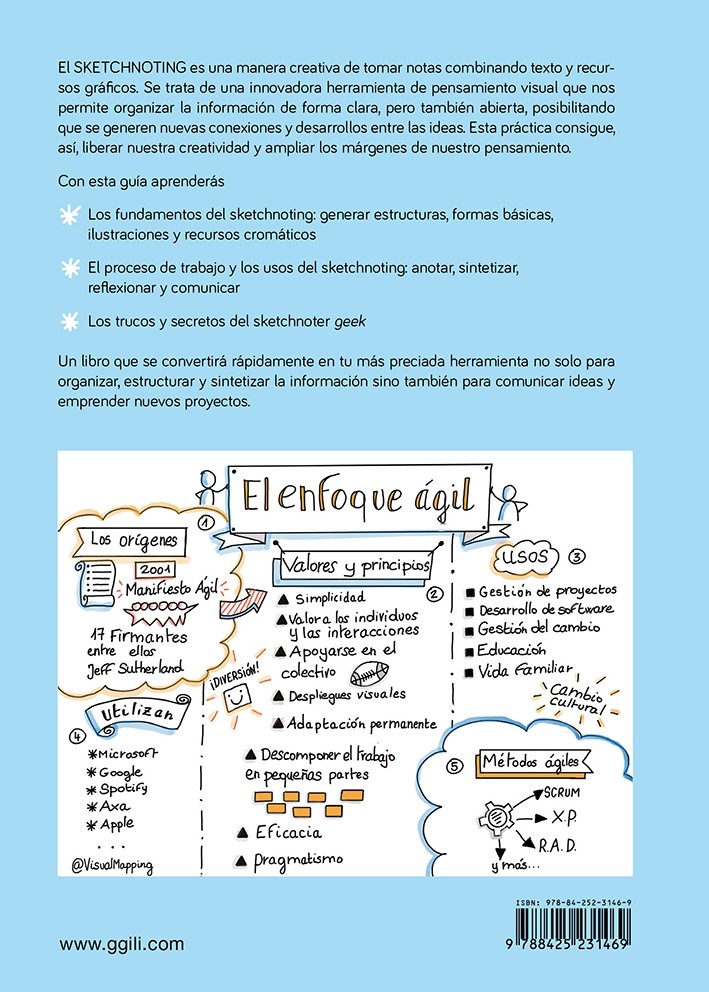 El SKETCHNOTING es una manera creativa de tomar notas combinando texto y recur-
sos gráficos. Se trata de una innovadora herramienta de pensamiento visual que nos
permite organizar la información de forma clara, pero también abierta, posibilitando
que se generen nuevas conexiones y desarrollos entre las ideas. Esta práctica consigue,
así, liberar nuestra creatividad y ampliar los márgenes de nuestro pensamiento.
Con esta guía aprenderás
Los fundamentos del sketchnoting: generar estructuras, formas básicas,
ilustraciones y recursos cromáticos
El proceso de trabajo y los usos del sketchnoting: anotar, sintetizar,
reflexionar y comunicar
Los trucos y secretos del sketchnoter geek
Un libro que se convertirá rápidamente en tu más preciada herramienta no solo para
organizar, estructurar y sintetizar la información sino también para comunicar ideas y
emprender nuevos proyectos.
El enfoque ágil
1
Los orígenes
2001
Manifiesto Ágil
17 Firmantes
entre ellos
Jeff Sutherland
Valores y principios
2
Simplicidad
Valora los individuos
y las interacciones
Apoyarse en el
colectivo
Despliegues visuales
Adaptación permanente
Descomponer el trabajo
en pequeñas partes
Eficacia
Pragmatismo
¡DIVERSIÓN!
USOS
3
Gestión de proyectos
Desarrollo de software
Gestión del cambio
Educación
Vida familiar
Cambio
cultural
Utilizan
4
Microsoft
Google
Spotify
Axa
Apple
...
@VisualMapping
5
Métodos ágiles
SCRUM
X.P.
R.A.D.
y más...
www.ggili.com
ISBN: 978-84-252-3146-9
9 788425 231469